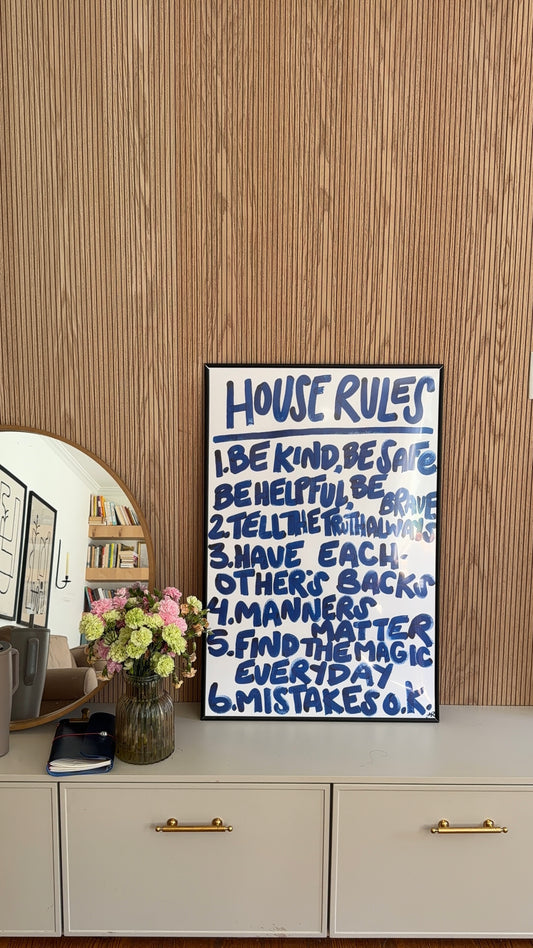 HOUSE RULES
1. BE KIND, BE SAFE
BE HELPFUL, BE BRAVE
2. TELL THE TRUTH ALWAYS
3. HAVE EACH-
OTHER'S BACKS
4. MANNERS
MATTER
5. FIND THE MAGIC
EVERYDAY
6. MISTAKES O.K.